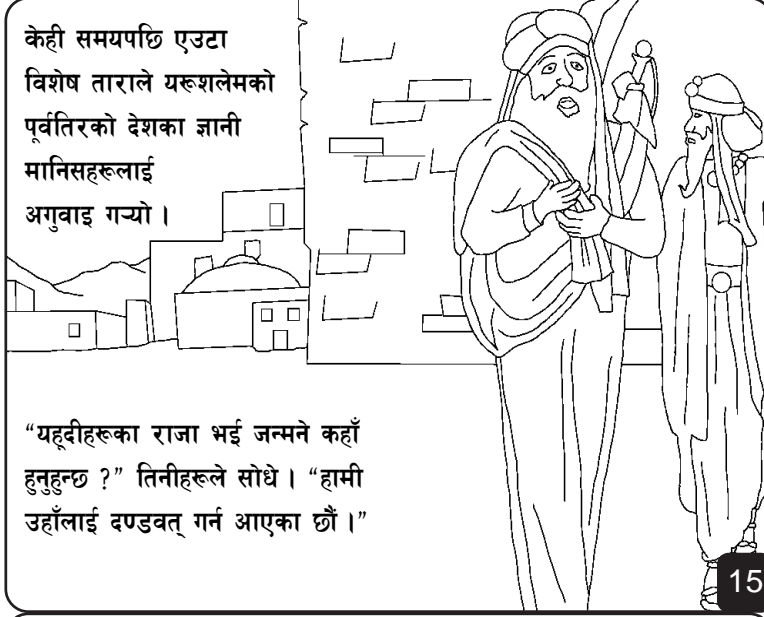 केही समयपछि एउटा
विशेष ताराले यरूशलेमको
पूर्वतिरको देशका ज्ञानी
मानिसहरूलाई
अगुवाइ गऱ्यो ।
“यहूदीहरूका राजा भई जन्मने कहाँ
हुनुहुन्छ ?” तिनीहरूले सोधे । “हामी
उहाँलाई दण्डवत् गर्न आएका छौं ।”
15